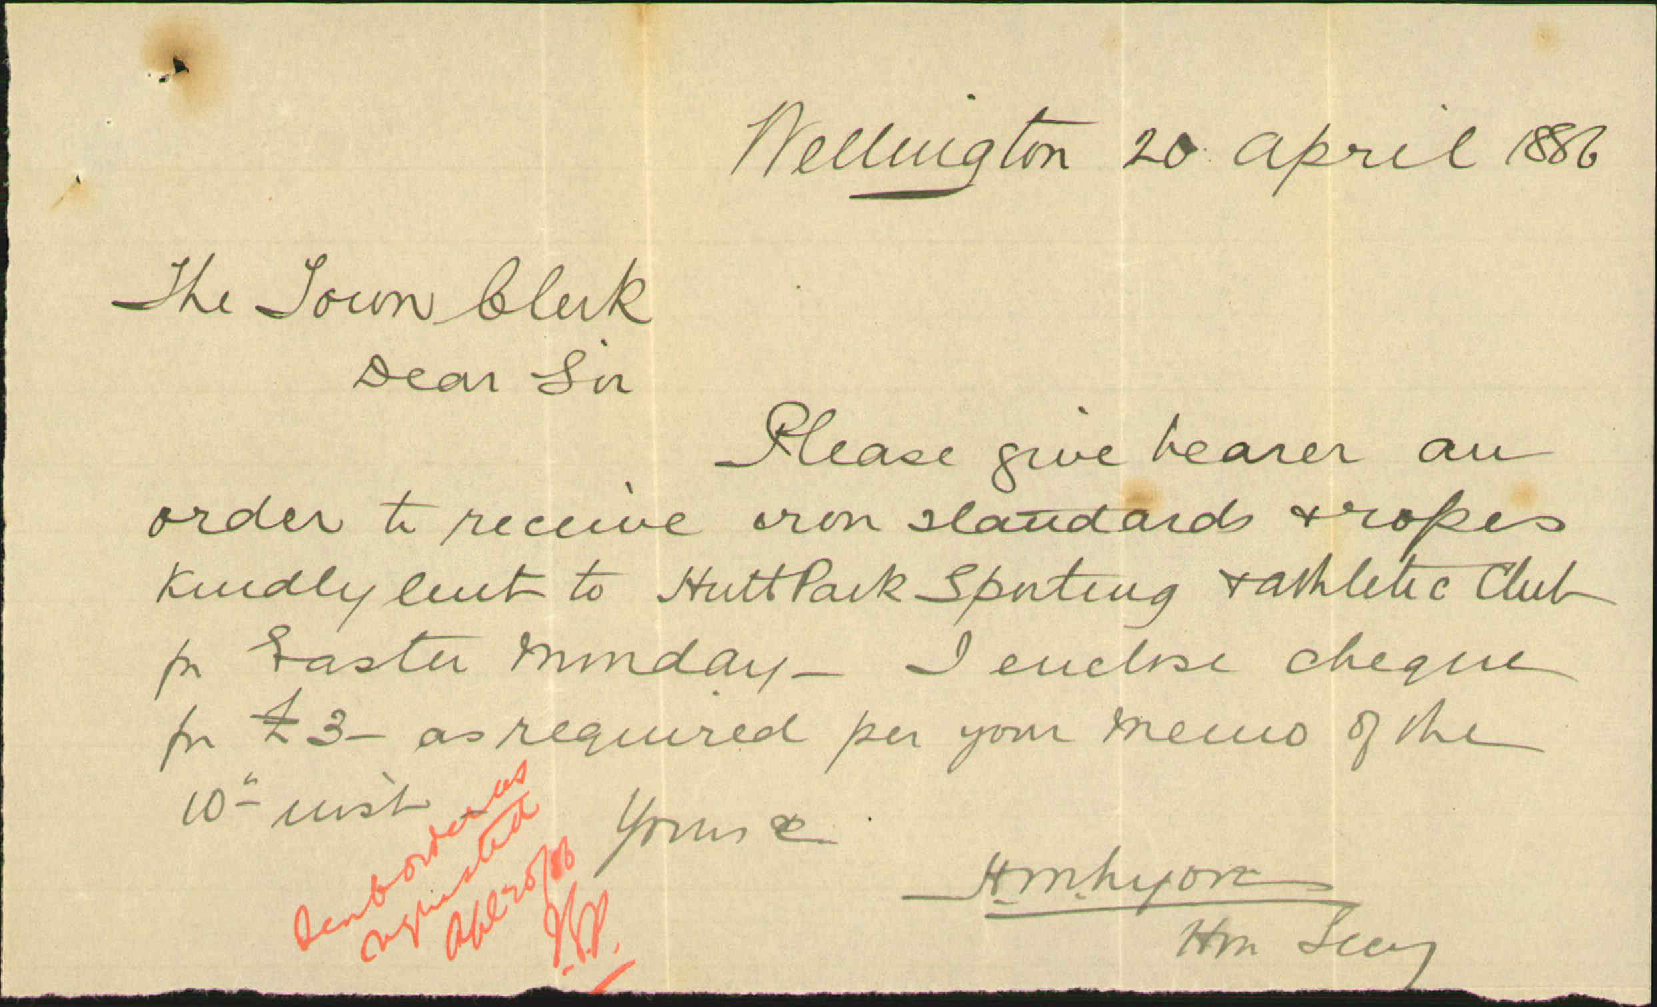 Wellington 20 April 1886
The Town Clerk
Dear Sir
Please give bearer an
order to receive iron standards & ropes
kindly lent to Hutt Park Sporting & athletic Club
for Easter Monday – I enclose cheque
for £3 – as required per your memo of the
10" inst –
Yours &c
H. M. Lyon
Hon Secy
Sent order as
requested
Apl 20/86